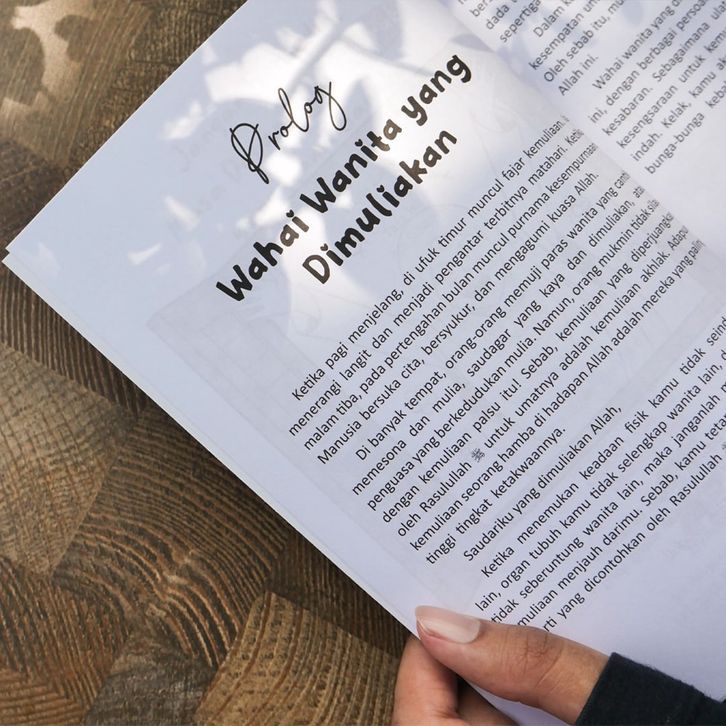 Prolog
Wahai Wanita yang
Dimuliakan
Ketika pagi menjelang, di ufuk timur muncul fajar kemuliaan,
menerangi langit dan menjadi pengantar terbitnya matahari. Ketika
malam tiba, pada pertengahan bulan muncul purnama kesempurnaan
Manusia bersuka cita, bersyukur, dan mengagumi kuasa Allah.
Di banyak tempat, orang-orang memuji paras wanita yang
memesona dan mulia, saudagar yang kaya dan dimuliakan,
penguasa yang berkedudukan mulia. Namun, orang mukmin tidak
dengan kemuliaan palsu itu! Sebab, kemuliaan yang diperjuangkan
oleh Rasulullah ﷺ untuk umatnya adalah kemuliaan akhlak.
kemuliaan seorang hamba di hadapan Allah adalah mereka yang
tinggi tingkat ketakwaannya.
Saudariku yang dimuliakan Allah,
Ketika menemukan keadaan fisik kamu tidak
lain, organ tubuh kamu tidak selengkap wanita lain,
tidak seberuntung wanita lain, maka janganlah
muliaan menjauh darimu. Sebab, kamu
rti yang dicontohkan oleh Rasulullah
dada
sepertiga
Dalam
kesempatan
Oleh sebab itu,
Allah ini.
Wahai wanita yang
ini, dengan berbagai
kesabaran. Sebagaimana
kesengsaraan untuk
indah. Kelak, kamu
bunga-bunga